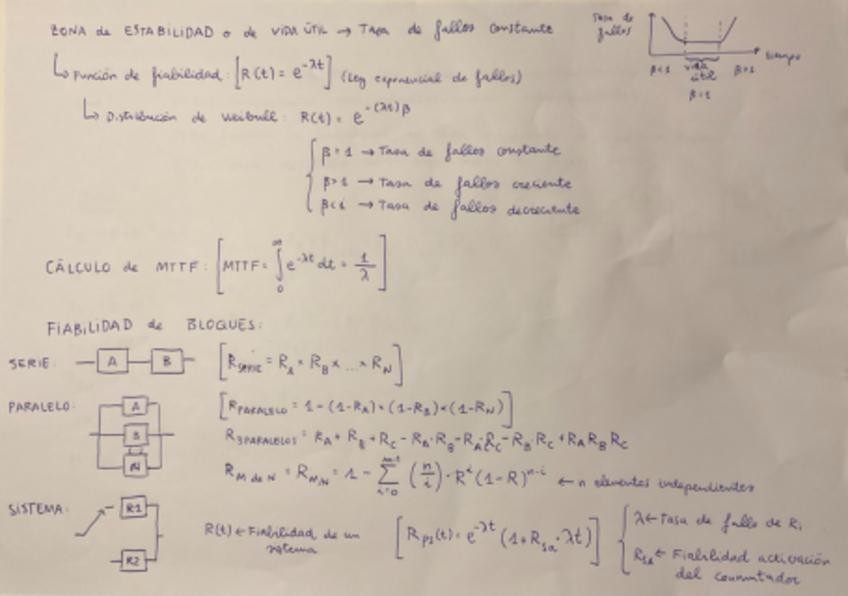 ZONA de ESTABILIDAD o de VIDA ÚTIL → Tasa de fallos constante
Tasa de fallos
tiempo
β<1 vida útil β>1
β=1
↳ Función de fiabilidad: [R(t) = e^{-λt}] (Ley exponencial de fallos)
↳ Distribución de Weibull: R(t) = e^{-(λt)β}
β=1 → Tasa de fallos constante
β>1 → Tasa de fallos creciente
β<1 → Tasa de fallos decreciente
CÁLCULO de MTTF: [MTTF = ∫₀^∞ e^{-λt} dt = 1/λ]
FIABILIDAD de BLOQUES:
SERIE: A B [R_SERIE = R_A × R_B × ... × R_N]
PARALELO: A B N [R_PARALELO = 1-(1-R_A)×(1-R_B)×(1-R_N)]
R_3PARALELOS = R_A + R_B + R_C - R_A·R_B - R_A·R_C - R_B·R_C + R_A R_B R_C
R_M de N = R_M,N = 1 - Σ_{i=0}^{m-1} (n/i) · R^i (1-R)^{n-i} ← n elementos independientes
SISTEMA: R1 R2
R(t) ← Fiabilidad de un sistema
[R_ps(t) = e^{-λt} (1+R_sa·λt)]
λ ← Tasa de fallo de Ri
R_sa ← Fiabilidad activación del conmutador